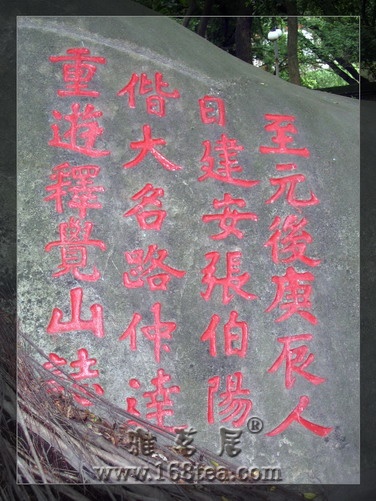 至元後庚辰人
日建安張伯陽
偕大名路仲達
重遊釋覺山誌
雅茗居®
www.168tea.com